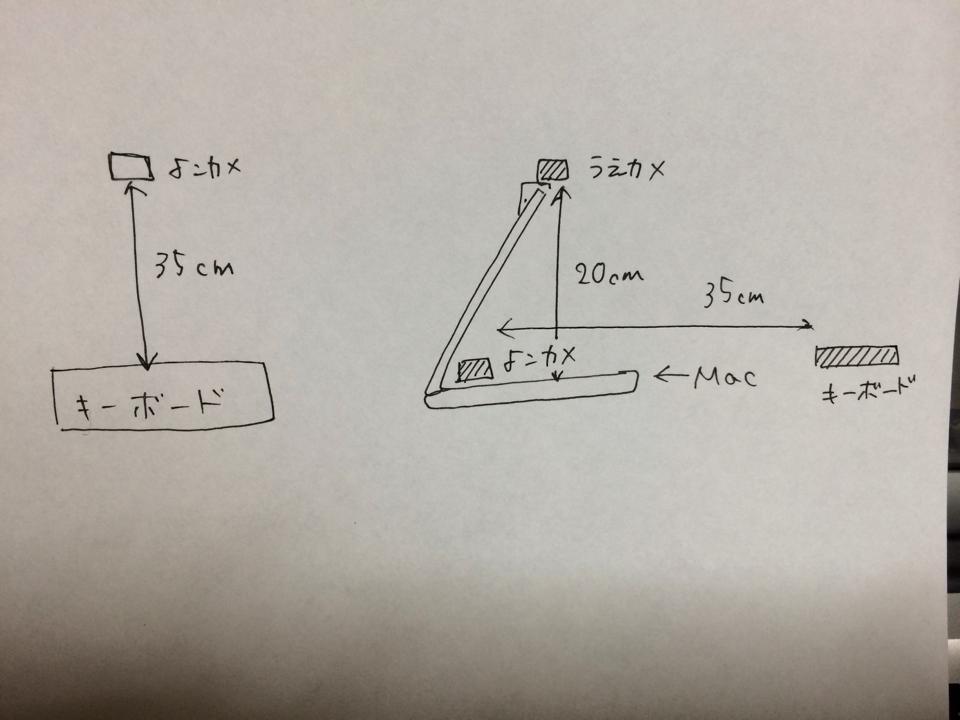 よこカメ
35cm
キーボード
うえカメ
20cm
35cm
よこカメ
←Mac
キーボード